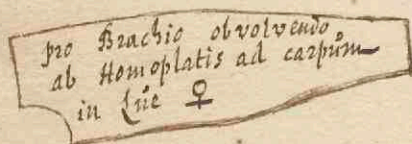 pro Brachio obvolvendo
ab Homoplatis ad carpům
in Lůe ♀